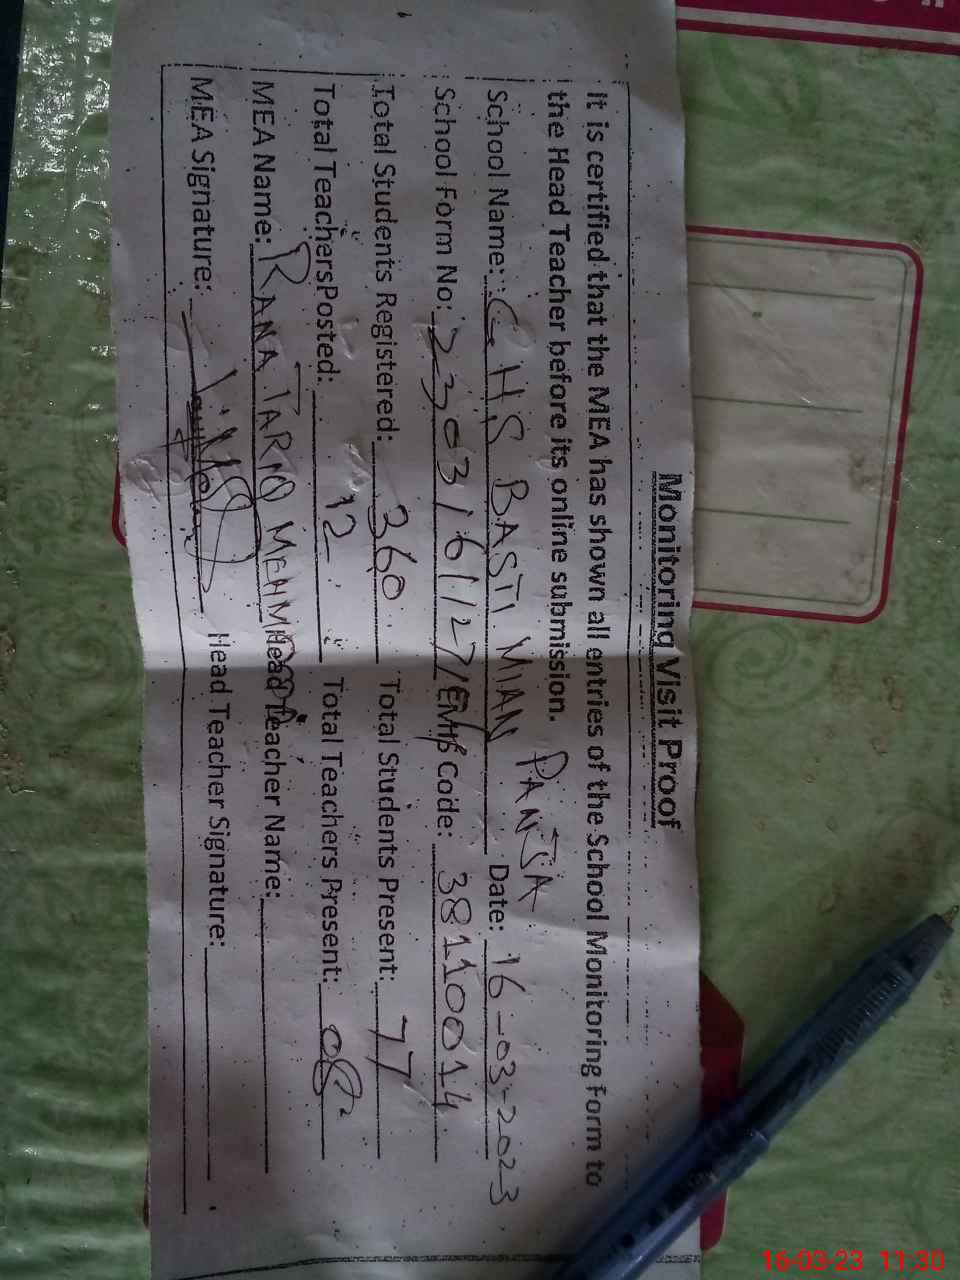 Monitoring Visit Proof
It is certified that the MEA has shown all entries of the School Monitoring Form to
the Head Teacher before its online submission.
School Name: GHS BASTI MIAN PANJA Date: 16-03-2023
School Form No: 2303161127/EMIS Code: 38110014
Total Students Registered: 360 Total Students Present: 77
Total TeachersPosted: 12 Total Teachers Present: 08
MEA Name: RANA TARIQ MEHMOOD Head Teacher Name:
MEA Signature: Head Teacher Signature:
16-03-23 11:30